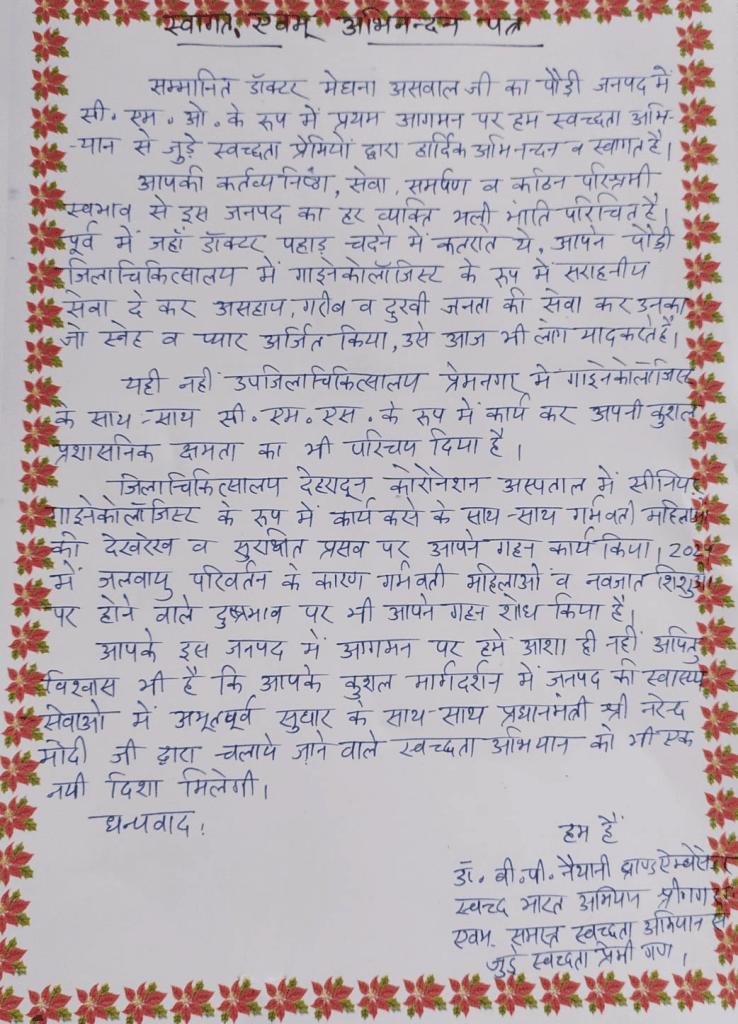 स्वागत, एवम् अभिनन्दन पत्र
सम्मानित डॉक्टर मेघना असवाल जी का पौड़ी जनपद में
सी. एम. ओ. के रूप में प्रथम आगमन पर हम स्वच्छता अभि-
-यान से जुड़े स्वच्छता प्रेमियों द्वारा हार्दिक अभिनन्दन व स्वागत है।
आपकी कर्तव्यनिष्ठा, सेवा, समर्पण व कठिन परिश्रमी
स्वभाव से इस जनपद का हर व्यक्ति भली भांति परिचित है।
पूर्व में जहाँ डॉक्टर पहाड़ चढ़ने में कतराते थे, आपने पौड़ी
जिलाचिकित्सालय में गाइनेकोलॉजिस्ट के रूप में सराहनीय
सेवा दे कर असहाय, गरीब व दुखी जनता की सेवा कर उनका
जो स्नेह व प्यार अर्जित किया, उसे आज भी लोग याद करते हैं।
यही नहीं उपजिलाचिकित्सालय प्रेमनगर में गाइनेकोलॉजिस्ट
के साथ-साथ सी. एम. एस. के रूप में कार्य कर अपनी कुशल
प्रशासनिक क्षमता का भी परिचय दिया है।
जिलाचिकित्सालय देहरादून कोरोनेशन अस्पताल में सीनियर
गाइनेकोलॉजिस्ट के रूप में कार्य करने के साथ-साथ गर्भवती महिलाओं
की देखरेख व सुरक्षित प्रसव पर आपने गहन कार्य किया। 2024
में जलवायु परिवर्तन के कारण गर्भवती महिलाओं व नवजात शिशुओं
पर होने वाले दुष्प्रभाव पर भी आपने गहन शोध किया है।
आपके इस जनपद में आगमन पर हमें आशा ही नहीं अपितु
विश्वास भी है कि आपके कुशल मार्गदर्शन में जनपद की स्वास्थ्य
सेवाओं में अभूतपूर्व सुधार के साथ-साथ प्रधानमंत्री श्री नरेन्द्र
मोदी जी द्वारा चलाये जाने वाले स्वच्छता अभियान को भी एक
नयी दिशा मिलेगी।
धन्यवाद!
हम हैं
डॉ. बी. पी. नैथानी ब्राण्ड ऐम्बेसेडर
स्वच्छ भारत अभियान
एवम. समस्त स्वच्छता अभियान से
जुड़े स्वच्छता प्रेमी गण।